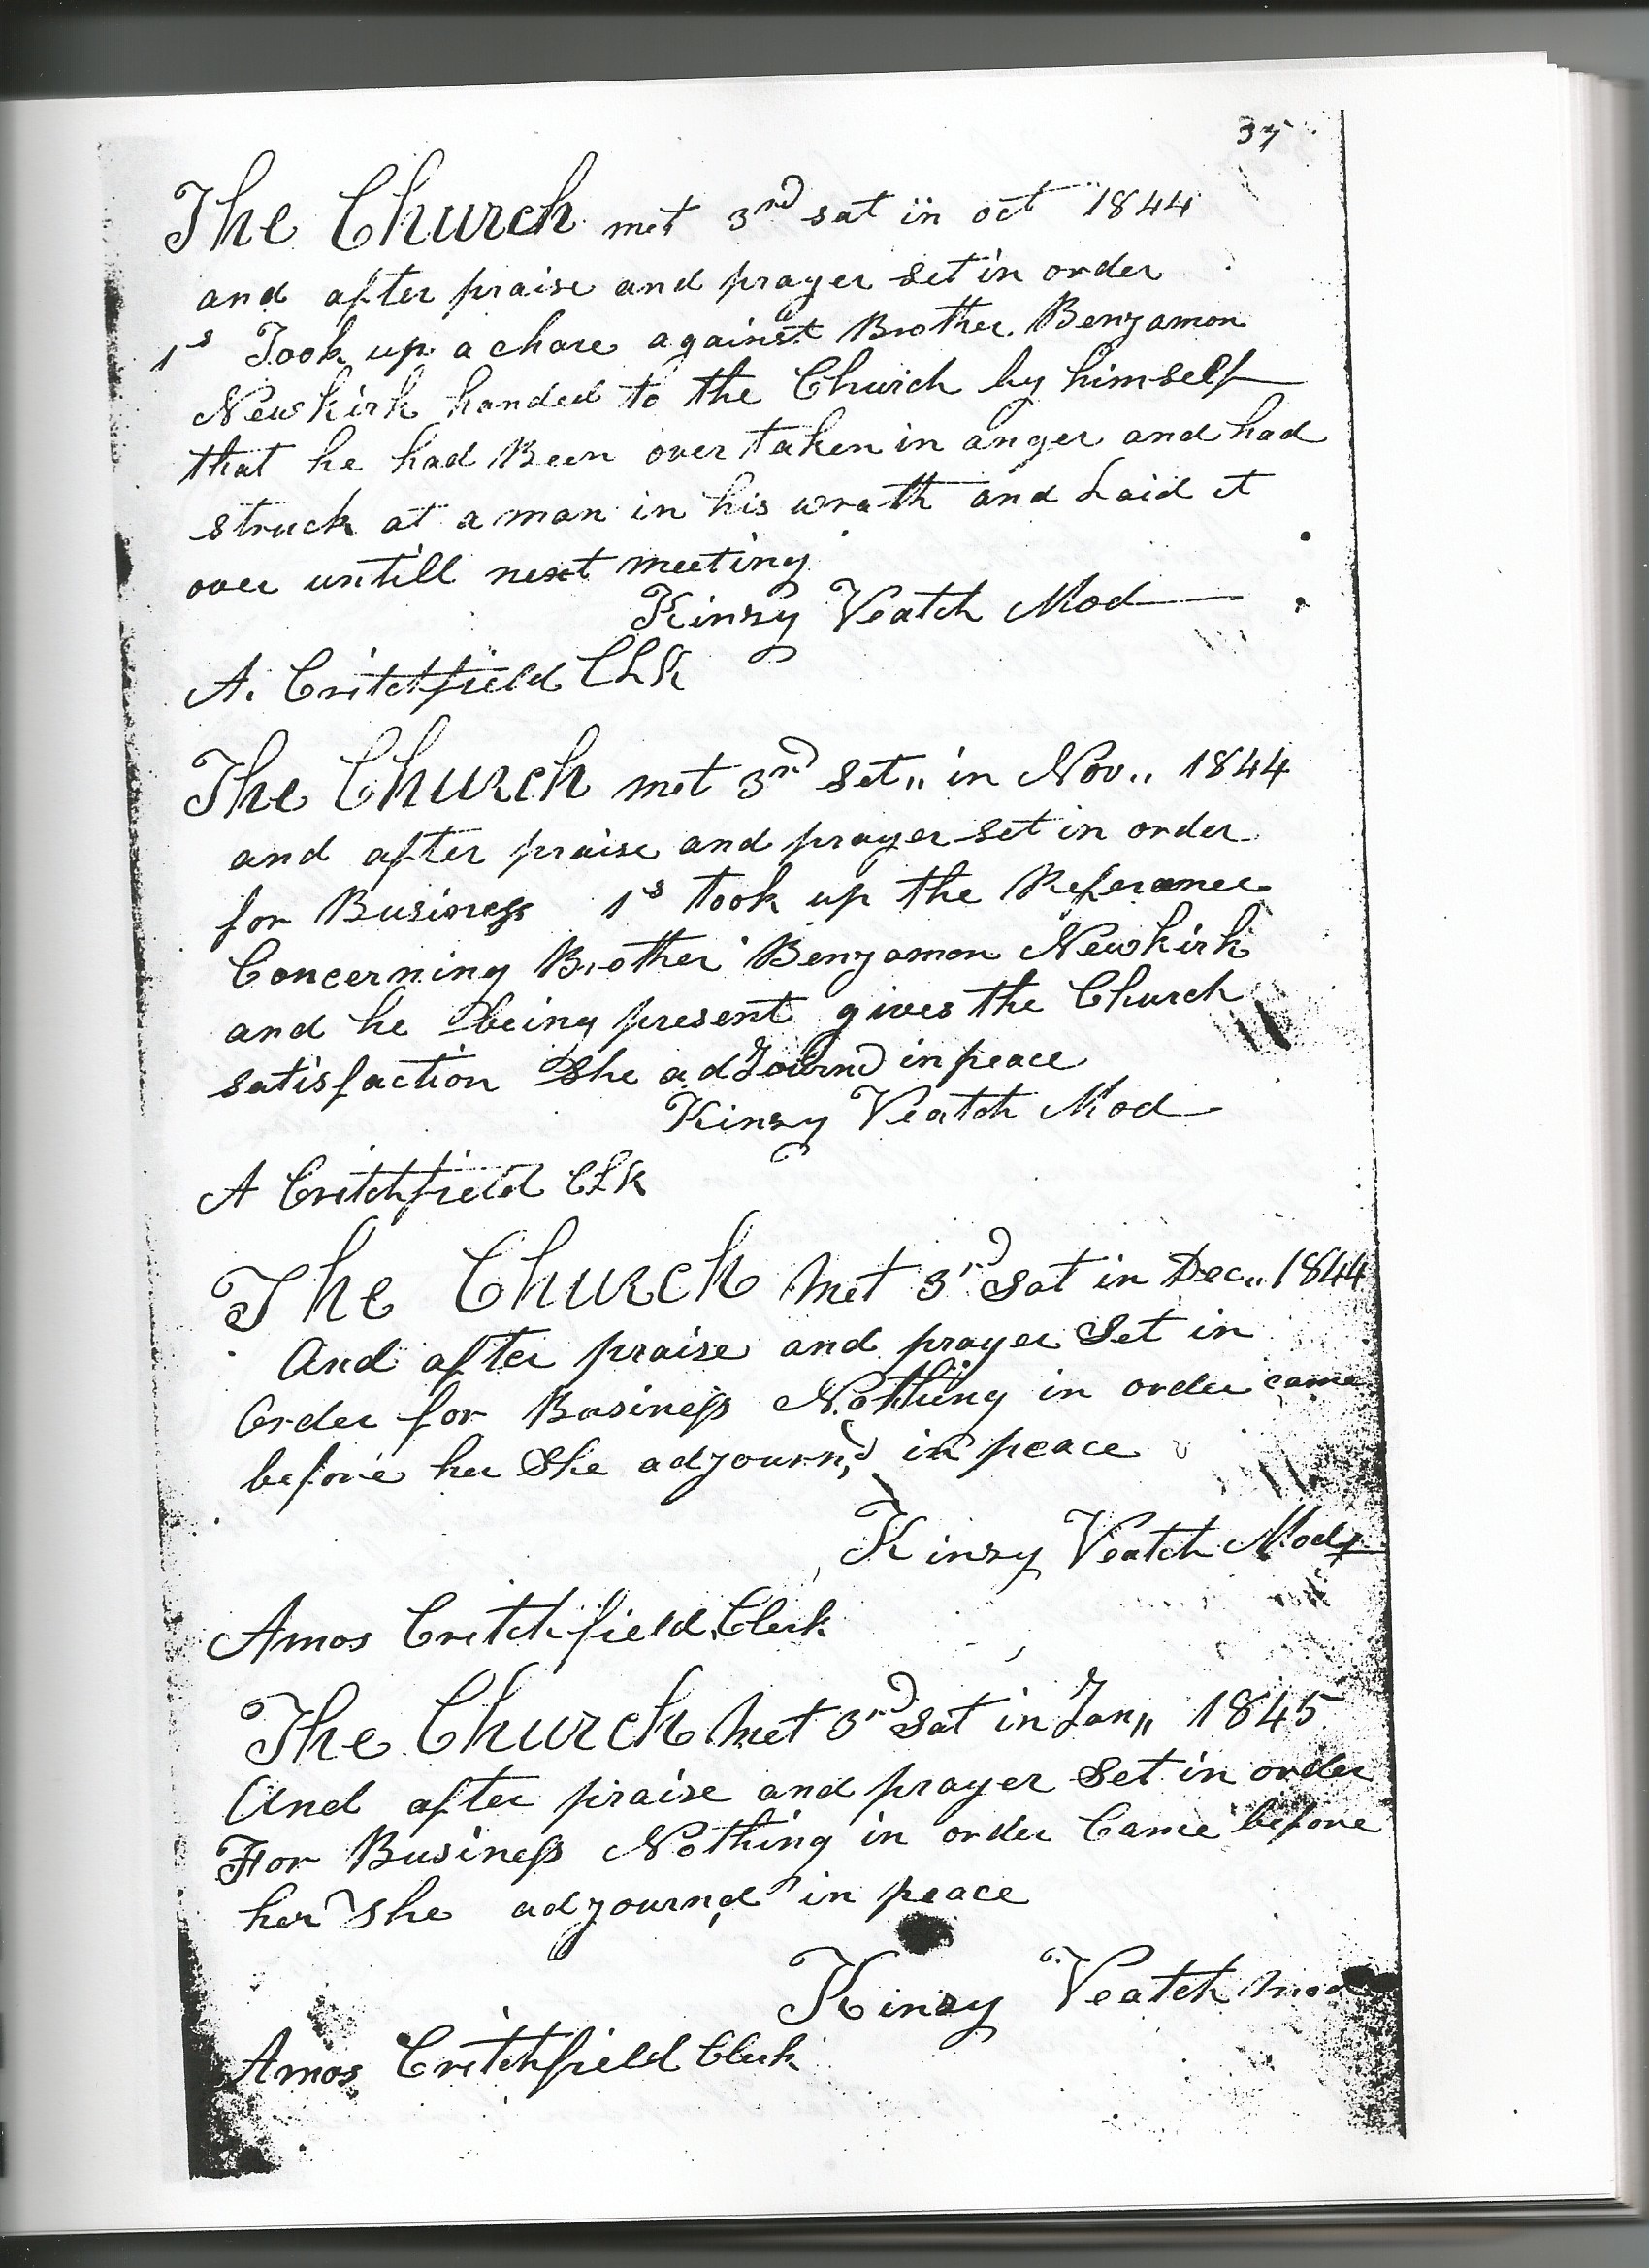 37
The Church met 3rd sat in oct 1844
and after praise and prayer set in order
1s Took up a chare against Brother Benjamon
Newkirk handed to the Church by himself
that he had Been over taken in anger and had
struck at a man in his wrath and Laid it
over untill next meeting
Kinzy Veatch Mod
A. Critchfield CLK
The Church met 3rd set,, in Nov,, 1844
and after praise and prayer set in order
for Business 1s took up the Referance
Concerning Brother Benjamon Newkirk
and he being present gives the Church
satisfaction She adJournd in peace
Kinzy Veatch Mod
A Critchfield CLK
The Church Met 3rd Sat in Dec,, 1844
And after praise and prayer Set in
Order for Business Nothing in order came
before her She adjournd in peace
Kinzy Veatch Mod
Amos Critchfield Clerk
The Church Met 3rd Sat in Jan,, 1845
And after praise and prayer Set in order
For Business Nothing in order Came before
her She adjournd in peace
Kinzy Veatch Mod
Amos Critchfield Clerk